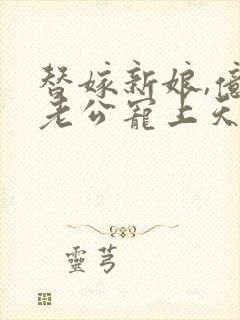 替嫁新娘,億
老公寵上天
靈芎